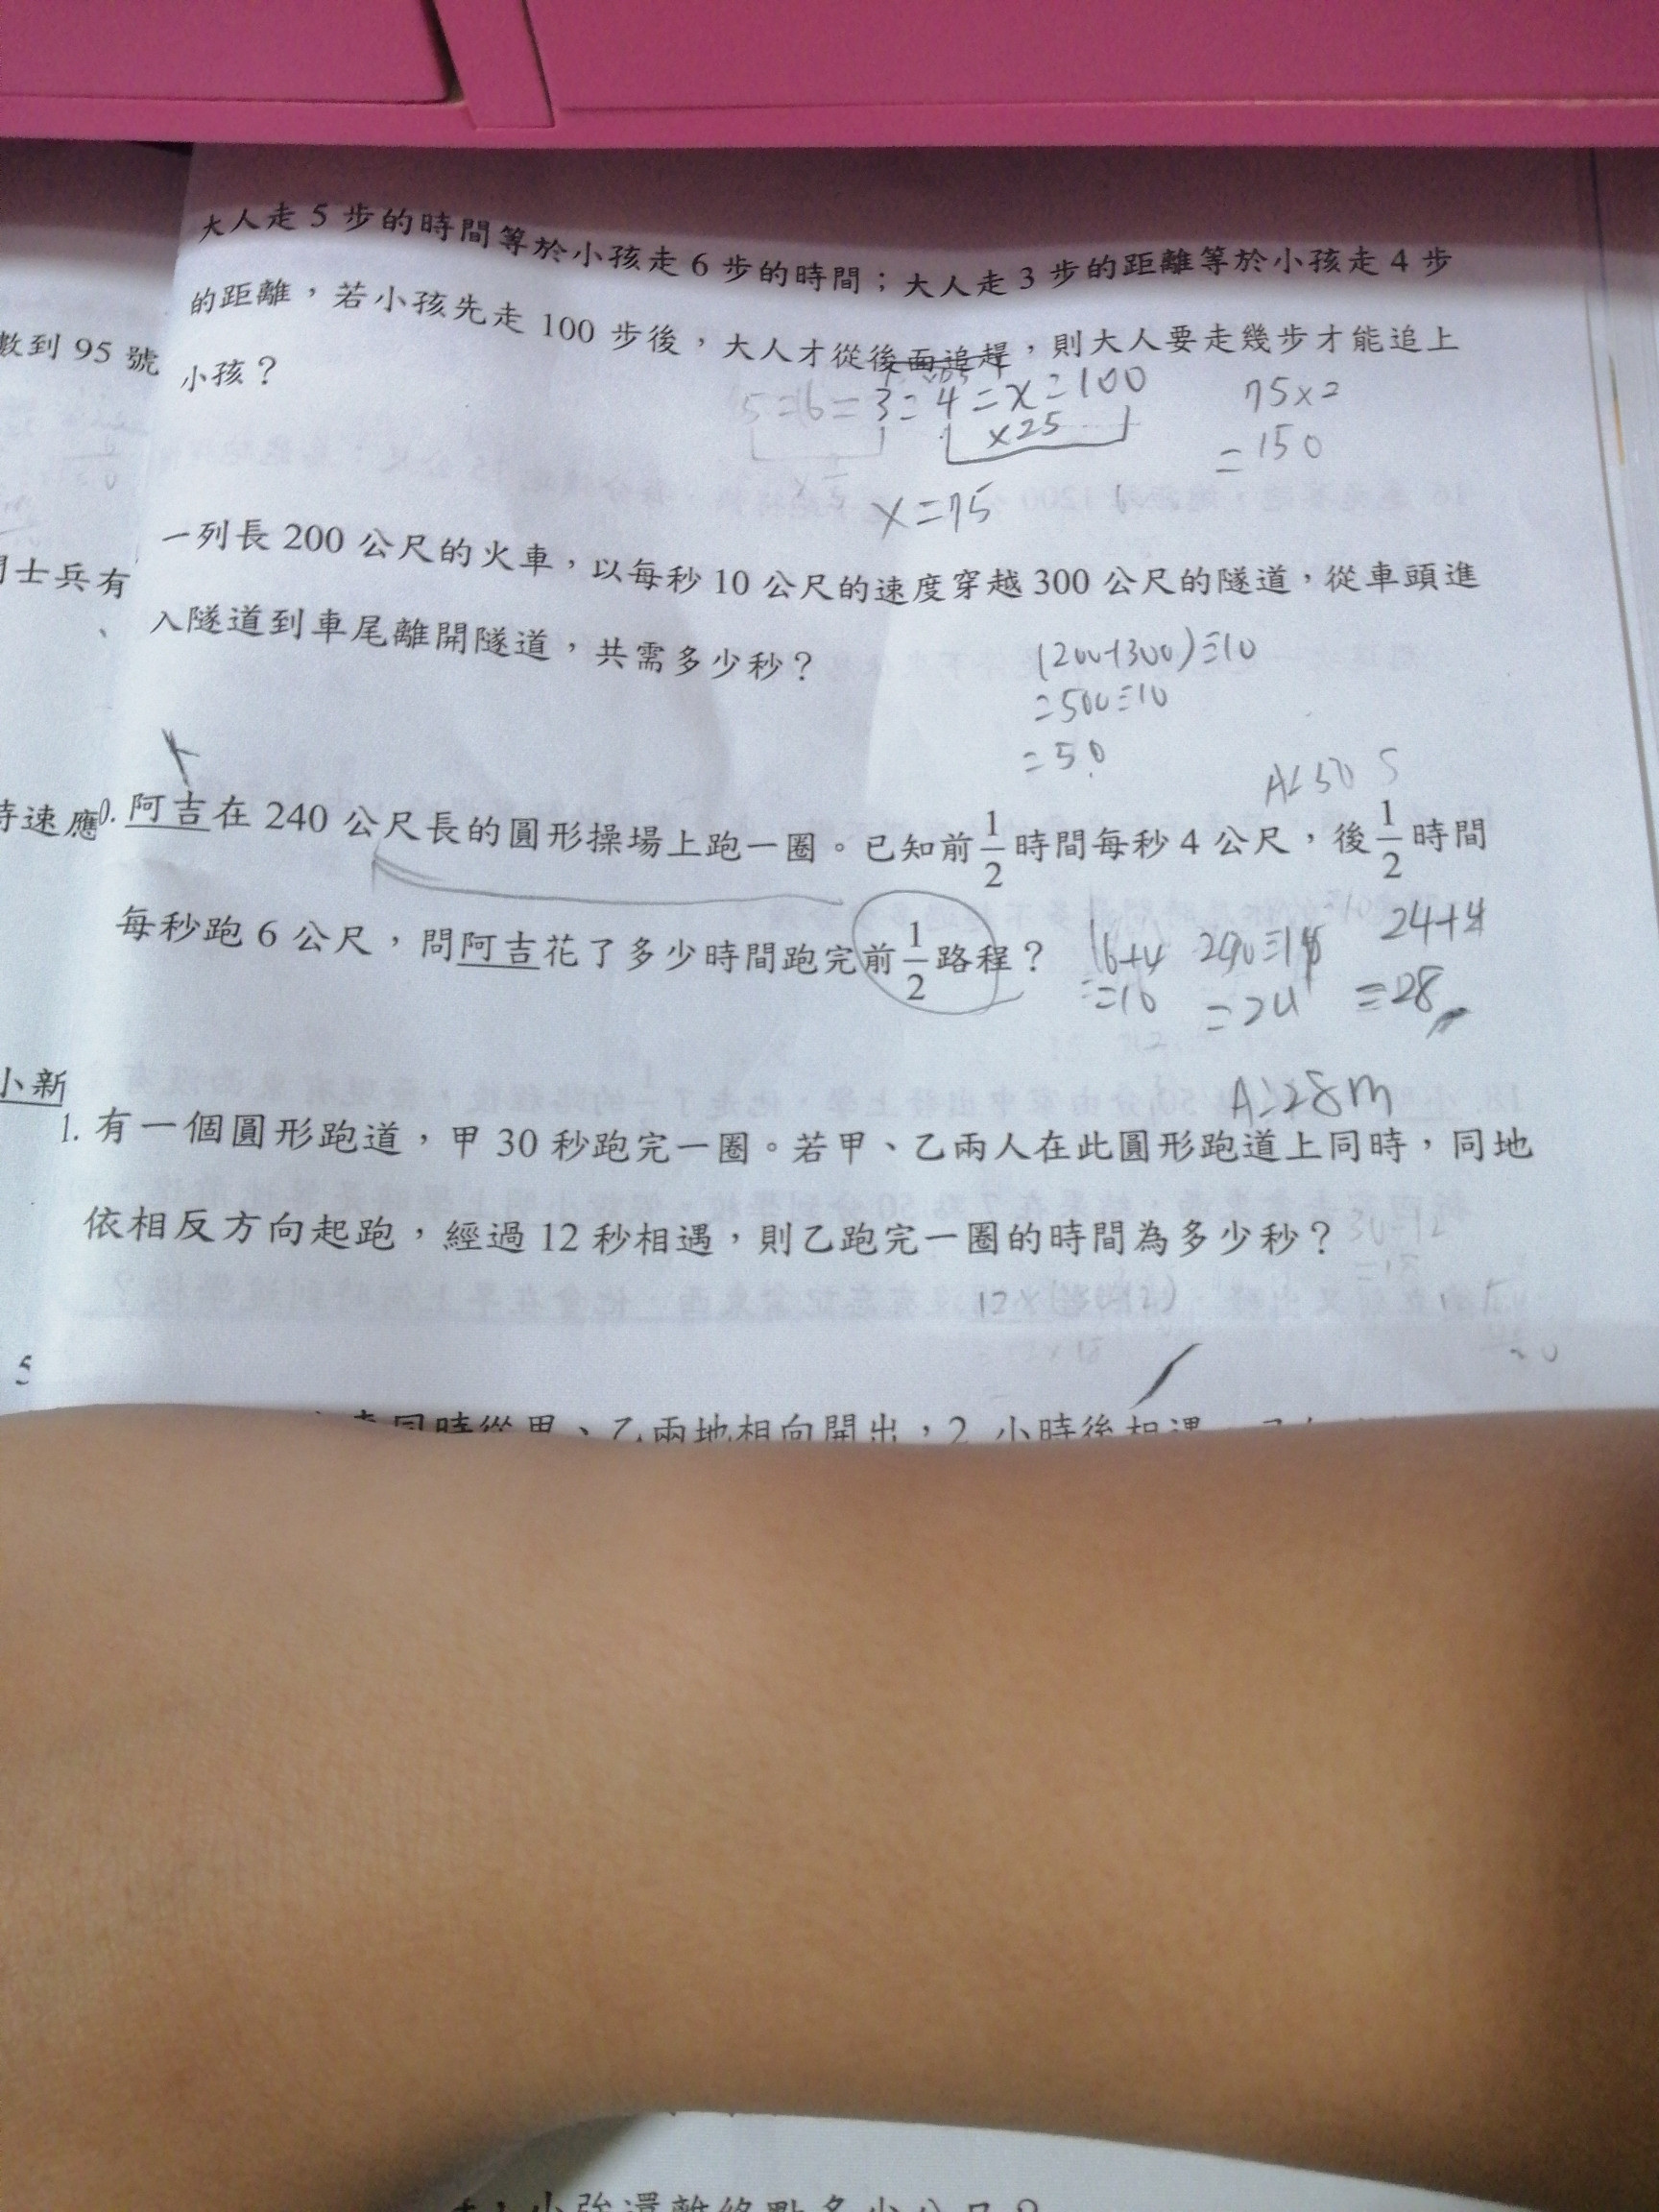 大人走 5 步的時間等於小孩走 6 步的時間；大人走 3 步的距離等於小孩走 4 步
的距離，若小孩先走 100 步後，大人才從後面追趕，則大人要走幾步才能追上
小孩？
數到 95 號
5=6=3=4=x=100
×25
x=75
75×2
=150
一列長 200 公尺的火車，以每秒 10 公尺的速度穿越 300 公尺的隧道，從車頭進
士兵有
入隧道到車尾離開隧道，共需多少秒？
(200+300)÷10
=500÷10
=50
A:50 s
時速應
0. 阿吉在 240 公尺長的圓形操場上跑一圈。已知前 1/2 時間每秒 4 公尺，後 1/2 時間
每秒跑 6 公尺，問阿吉花了多少時間跑完前 1/2 路程？
=10
=24
24+4
=28
A:28m
小新
1. 有一個圓形跑道，甲 30 秒跑完一圈。若甲、乙兩人在此圓形跑道上同時，同地
依相反方向起跑，經過 12 秒相遇，則乙跑完一圈的時間為多少秒？
5
同時從甲、乙兩地相向開出，2 小時後相遇
小強還離終點多少公尺？